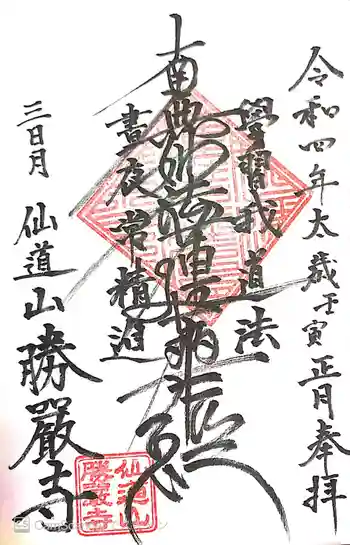 令和四年大歳壬寅 正月奉拝
學習我道法
南無妙法蓮華經
晝夜常精進
三日月 仙道山 勝嚴寺
仙道山
勝嚴寺